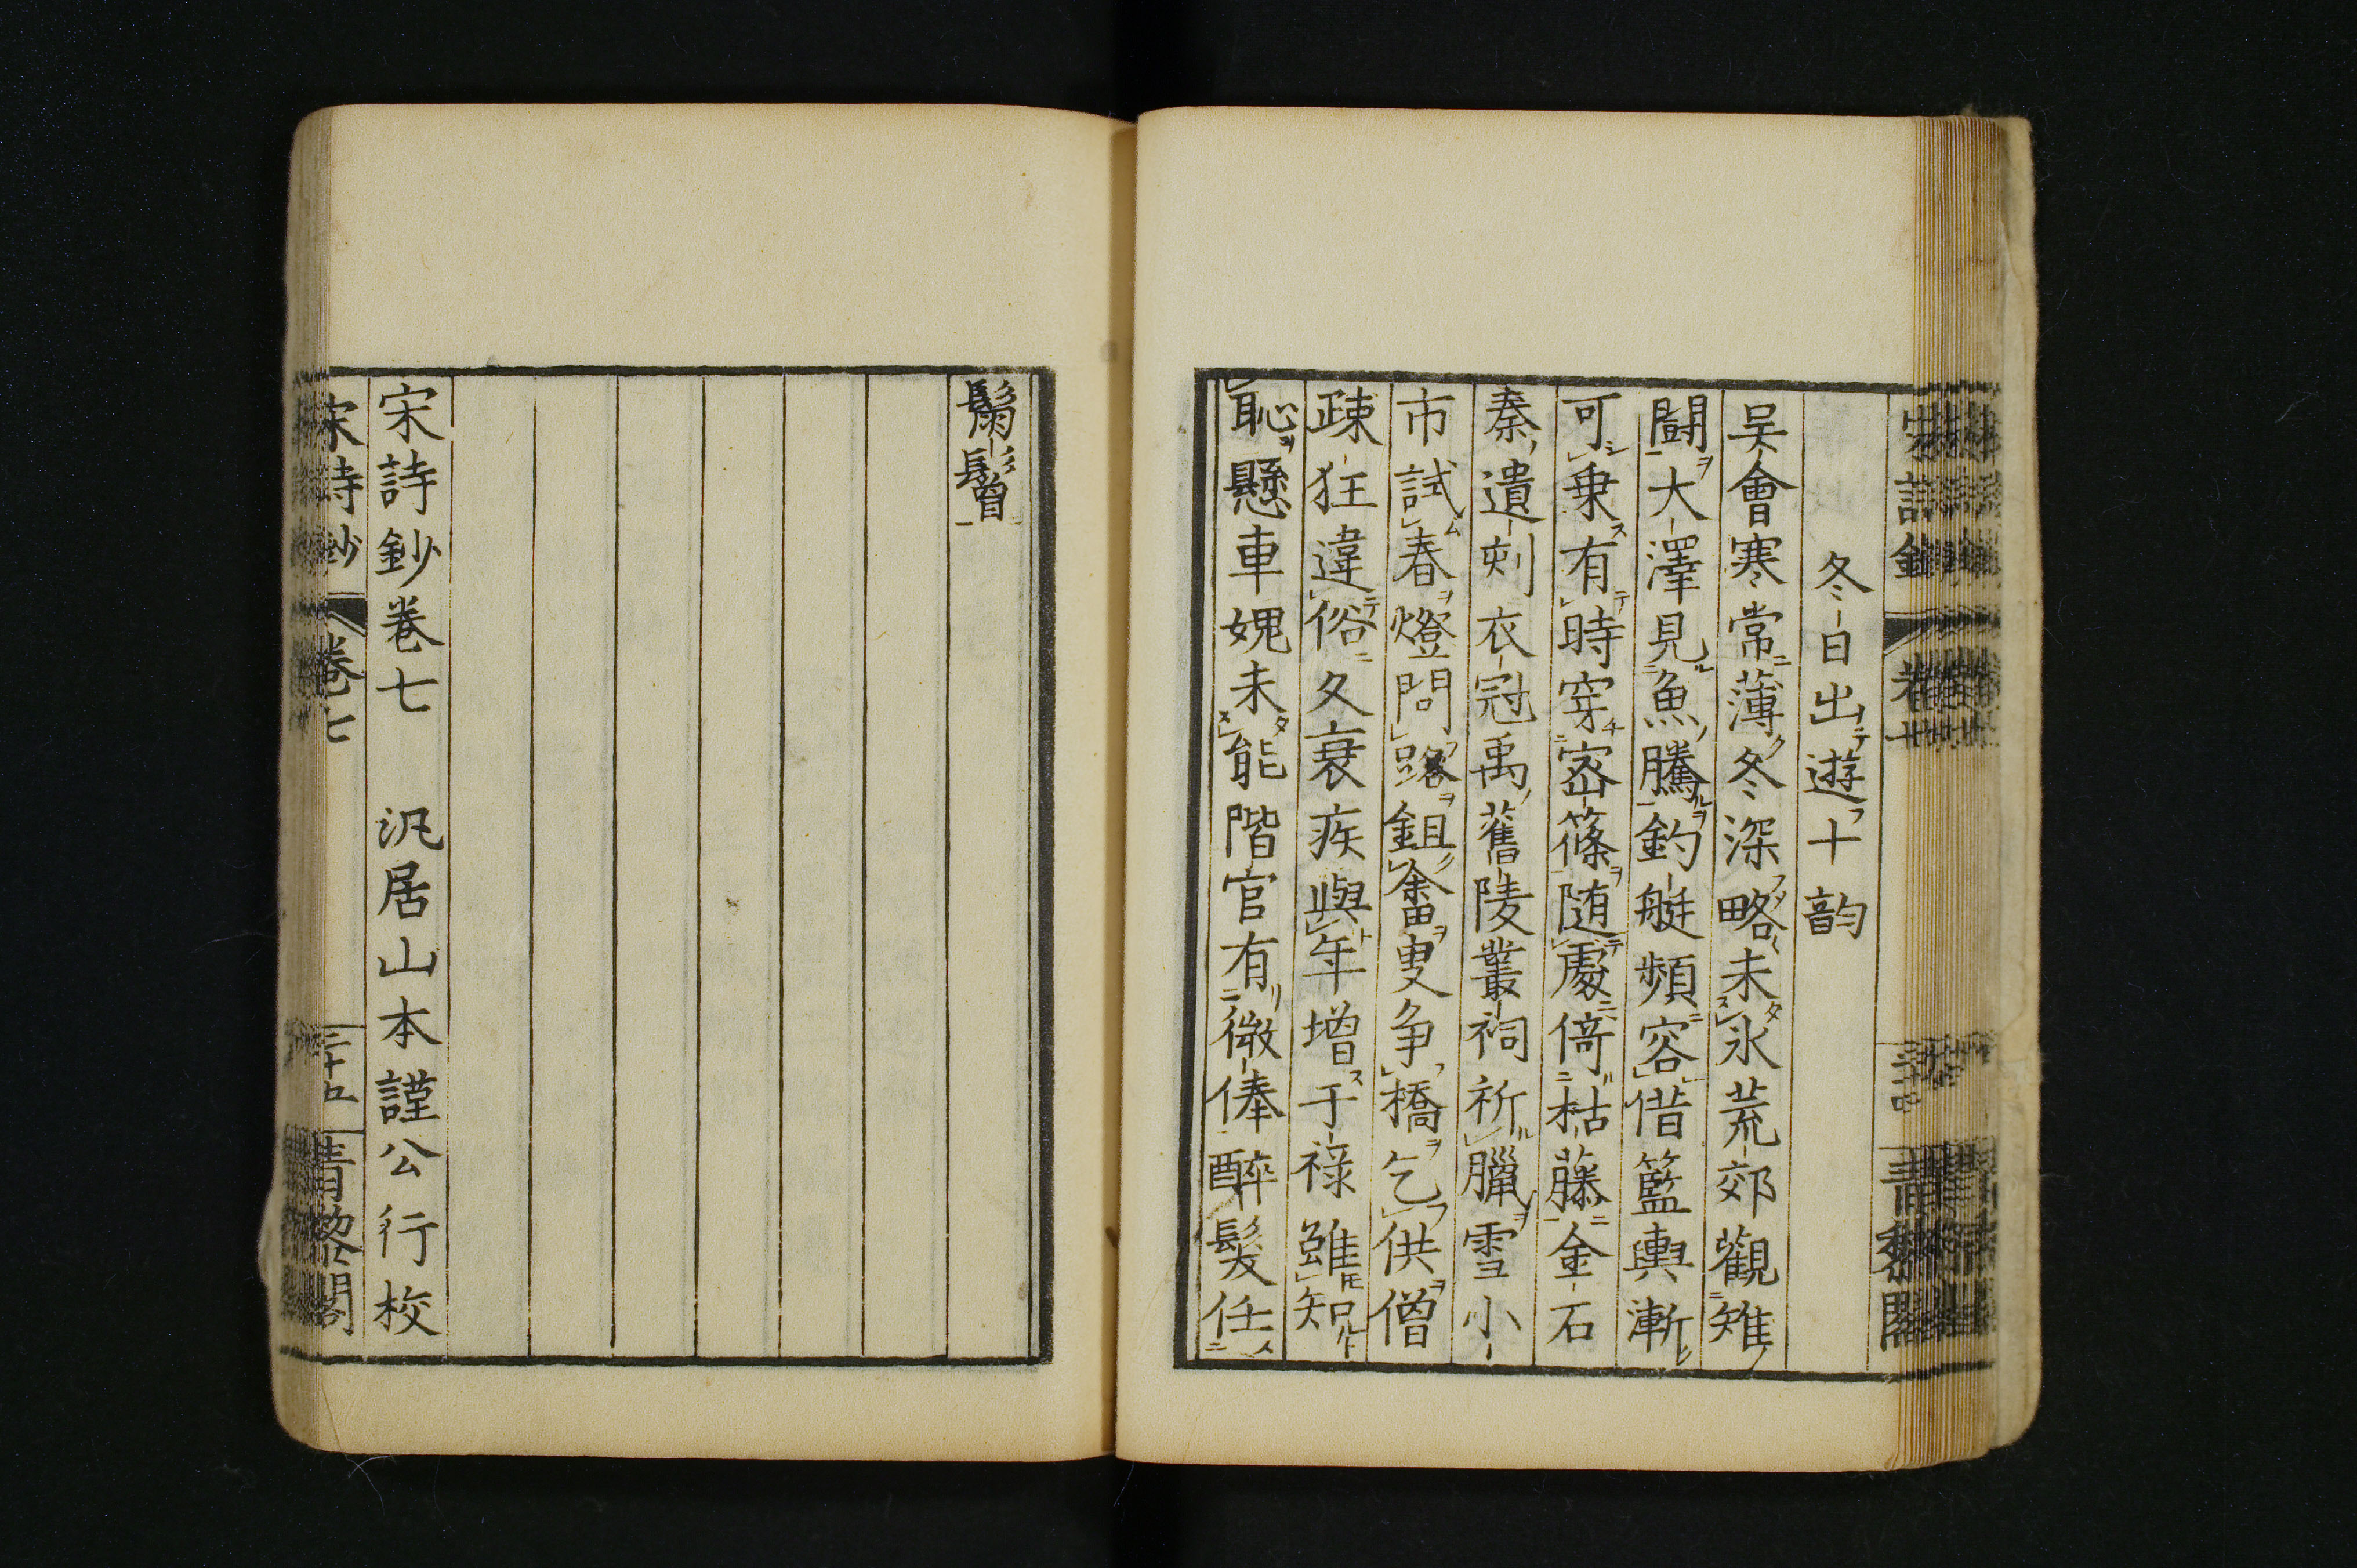 冬日出遊十韵
吴會寒常薄冬深略未氷荒郊觀雉
闘大澤見魚騰釣艇頻容借籃輿漸
可乗有時穿密篠随處倚枯藤金石
秦遺刻衣冠禹舊陵叢祠祈臘雪小
市試春燈問路鉏畲叟争橋乞供僧
疎狂違俗久衰疾與年増于祿雖知
恥懸車媿未能階官有微俸醉髮任
鬅鬙
宋詩鈔卷七 汎居山本謹公行校
宋詩鈔 卷七 三十五 青黎閣